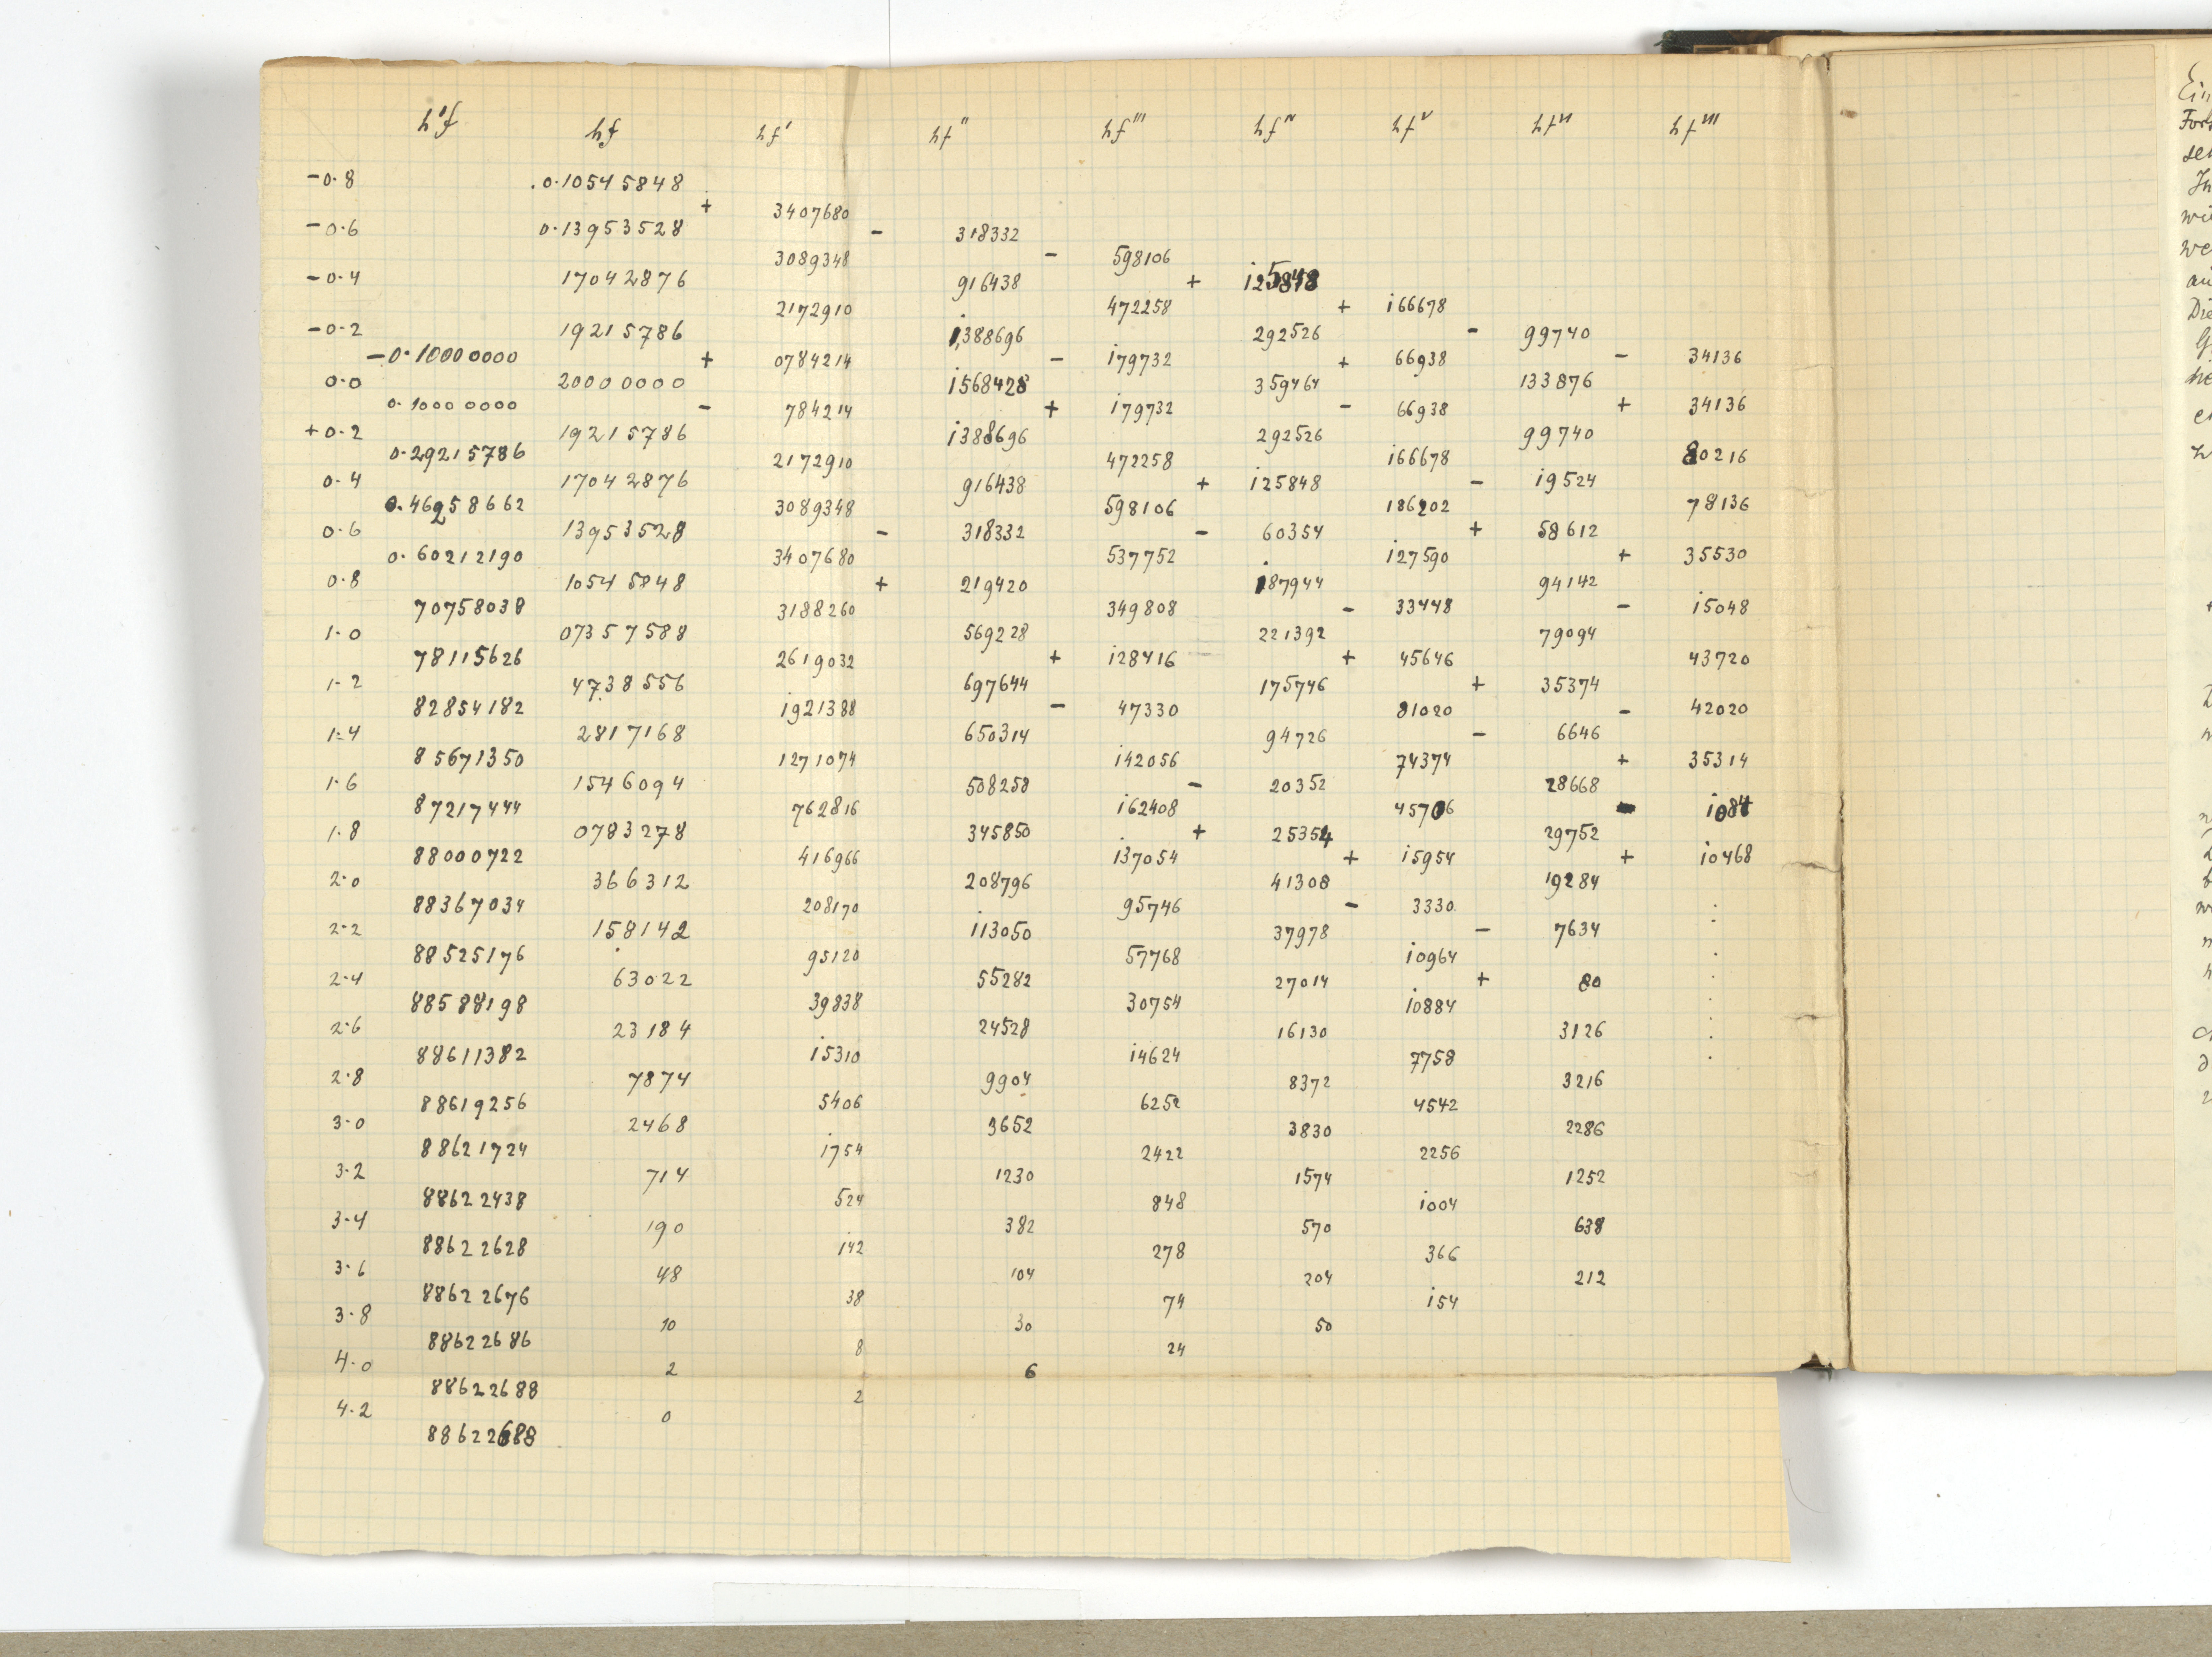 h'f hf hf' hf'' hf''' hf^IV hf^V hf^VI hf^VII
-0.8 .0.10545848
+ 3407680
-0.6 0.13953528 - 318332
3089348 - 598106
-0.4 17042876 916438 + 125848
2172910 472258 + 166678
-0.2 19215786 1,388696 292526 - 99740
-0.10000000 + 0784214 - 179732 + 66938 - 34136
0.0 20000000 1568428 359464 133876
0.10000000 - 784214 + 179732 - 66938 + 34136
+0.2 19215786 1388696 292526 99740
0.29215786 2172910 472258 166678 80216
0.4 17042876 916438 + 125848 - 19524
0.46258662 3089348 598106 186202 78136
0.6 13953528 - 318332 - 60354 + 58612
0.60212190 3407680 537752 127590 + 35530
0.8 10545848 + 219420 187944 94142
70758038 3188260 349808 - 33448 - 15048
1.0 07357588 569228 221392 79094
78115626 2619032 + 128416 + 45646 43720
1.2 4738556 697644 175746 + 35374
82854182 1921388 - 47330 81020 - 42020
1.4 2817168 650314 94726 - 6646
85671350 1271074 142056 74374 + 35314
1.6 1546094 508258 - 20352 28668
87217444 762816 162408 45706 - 1084
1.8 0783278 345850 + 25354 29752
88000722 416966 137054 + 15954 + 10468
2.0 366312 208796 41308 19284
88367034 208170 95746 - 3330
2.2 158142 113050 37978 - 7634
88525176 95120 57768 10964
2.4 63022 55282 27014 + 80
88588198 39838 30754 10884
2.6 23184 24528 16130 3126
88611382 15310 14624 7758
2.8 7874 9904 8372 3216
88619256 5406 6252 4542
3.0 2468 3652 3830 2286
88621724 1754 2422 2256
3.2 714 1230 1574 1252
88622438 524 848 1004
3.4 190 382 570 638
88622628 142 278 366
3.6 48 104 204 212
88622676 38 74 154
3.8 10 30 50
88622686 8 24
4.0 2 6
88622688 2
4.2 0
88622688